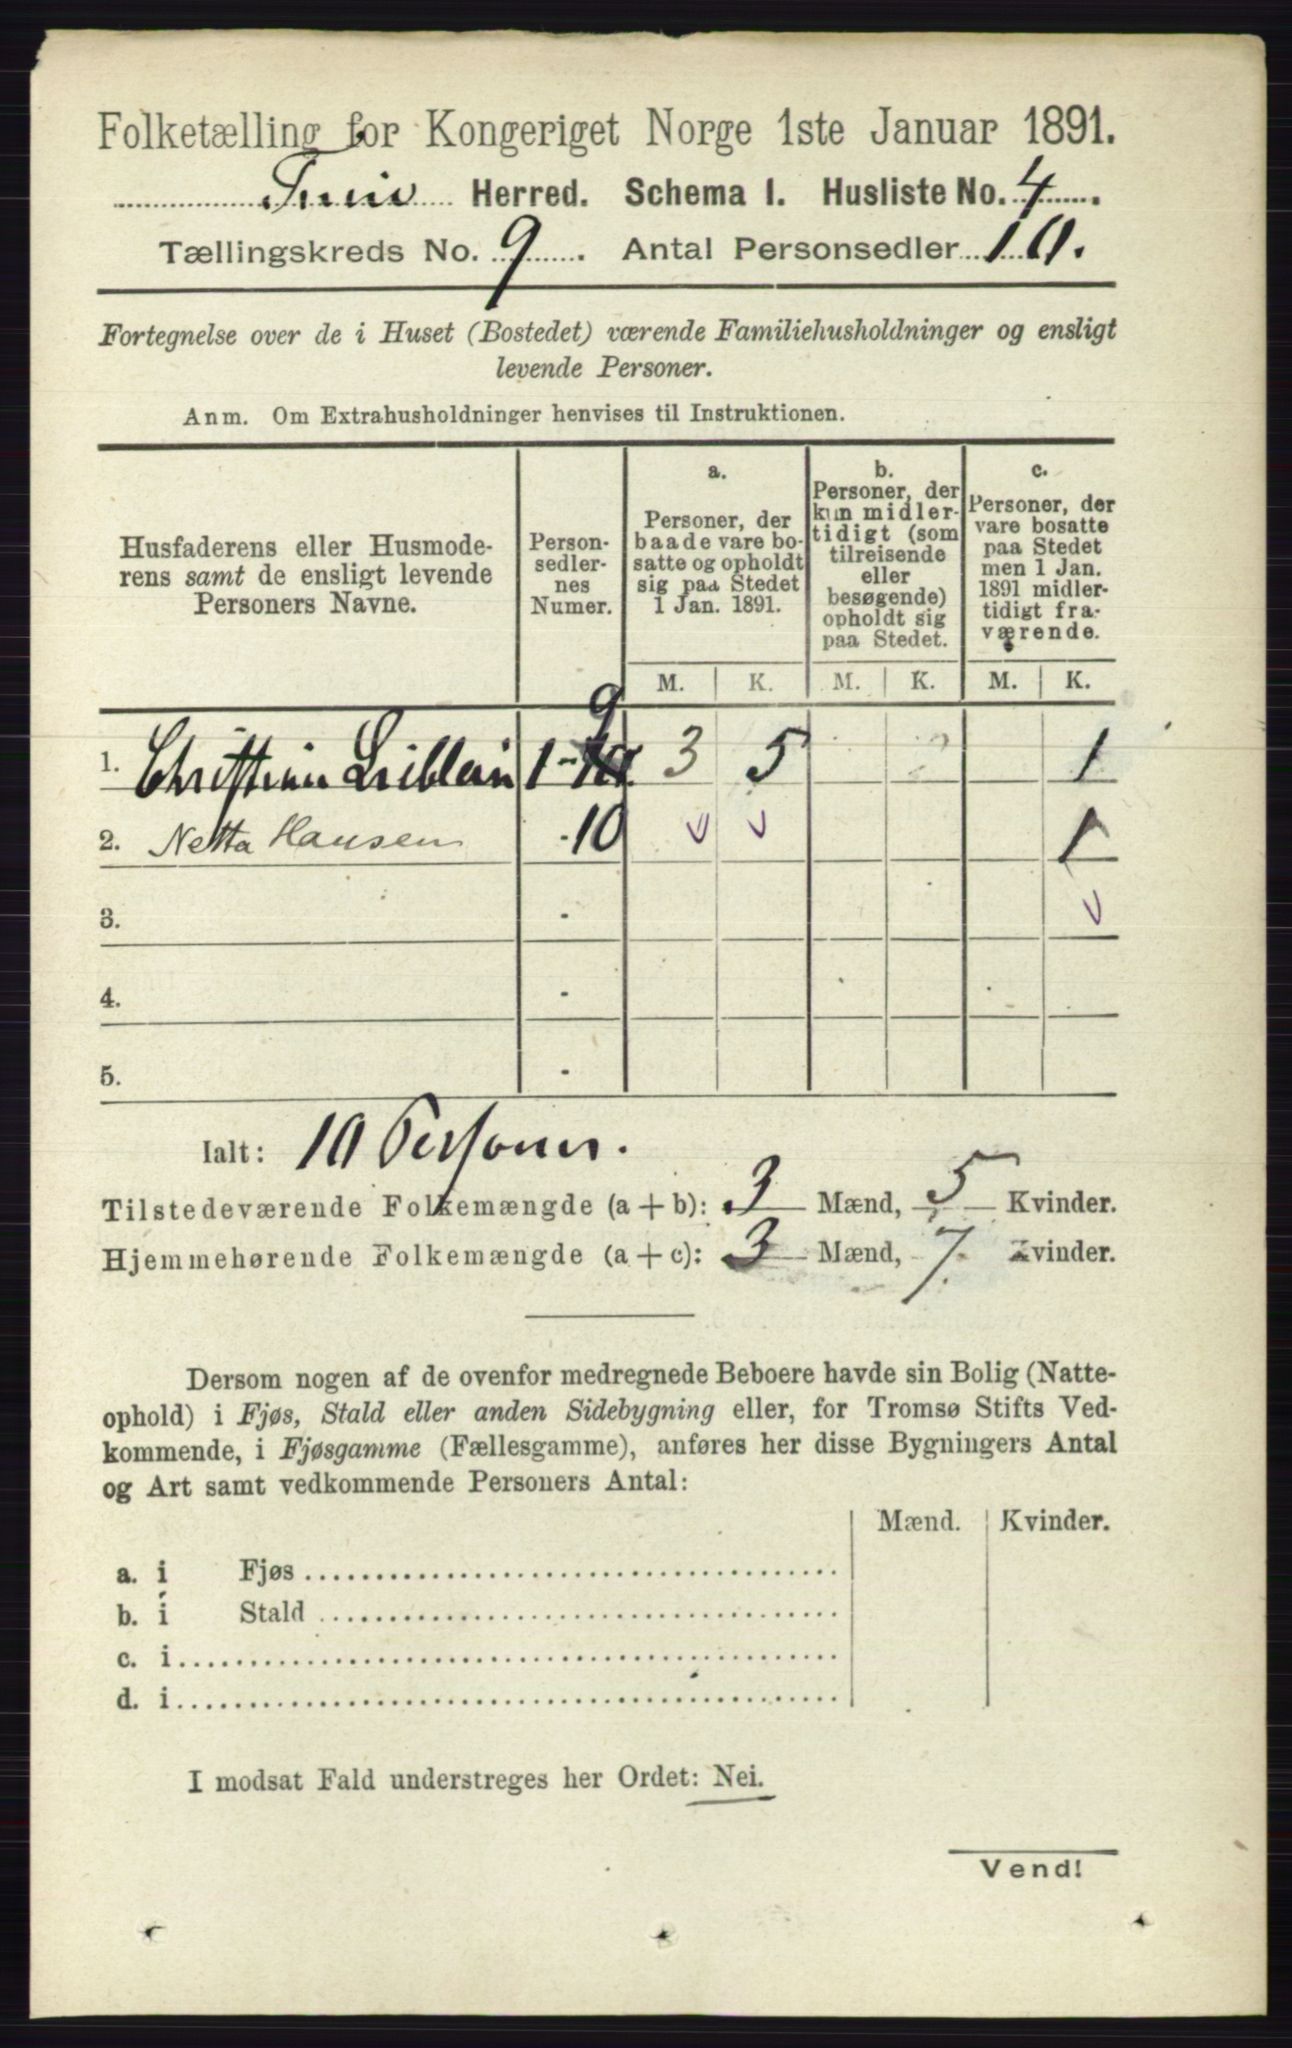 Folketælling for Kongeriget Norge 1ste Januar 1891.
Herred. Schema I. Husliste No. 4
Tællingskreds No. 9. Antal Personsedler 10.
Fortegnelse over de i Huset (Bostedet) værende Familiehusholdninger og ensligt
levende Personer.
Anm. Om Extrahusholdninger henvises til Instruktionen.
Husfaderens eller Husmode-
rens samt de ensligt levende
Personers Navne.
Person-
sedler-
nes
Numer.
a.
Personer, der
baade vare bo-
satte og opholdt
sig paa Stedet
1 Jan. 1891.
b.
Personer, der
kun midler-
tidigt (som
tilreisende
eller
besøgende)
opholdt sig
paa Stedet.
c.
Personer, der
vare bosatte
paa Stedet
men 1 Jan.
1891 midler-
tidigt fra-
værende.
M. K. M. K. M. K.
1. Christian 1-9 3 5 1
2. Netta Hansen 10 1
3.
4.
5.
Ialt: 10 Personer.
Tilstedeværende Folkemængde (a + b): 3 Mænd, 5 Kvinder.
Hjemmehørende Folkemængde (a + c): 3 Mænd, 7. Kvinder.
Dersom nogen af de ovenfor medregnede Beboere havde sin Bolig (Natte-
ophold) i Fjøs, Stald eller anden Sidebygning eller, for Tromsø Stifts Ved-
kommende, i Fjøsgamme (Fællesgamme), anføres her disse Bygningers Antal
og Art samt vedkommende Personers Antal:
Mænd. Kvinder.
a. i Fjøs
b. i Stald
c. i
d. i
I modsat Fald understreges her Ordet: Nei.
Vend!